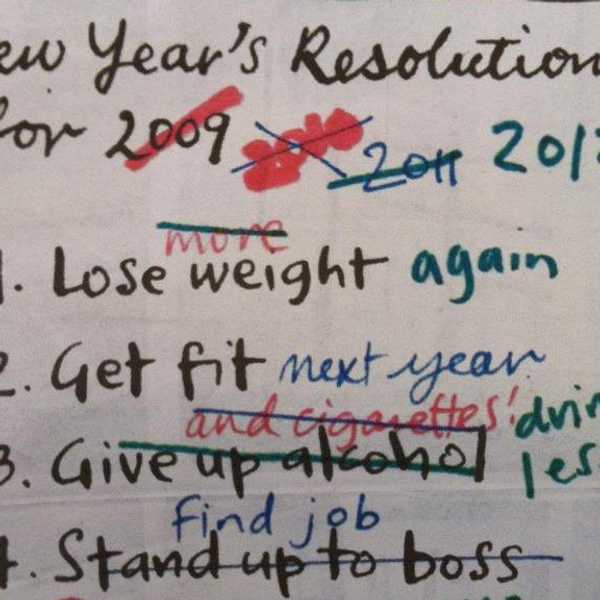 ew Year's Resolution
for 2009 2011 201
more
1. Lose weight again
2. Get fit next year
and cigarettes!
3. Give up alcohol
find job
4. Stand up to boss